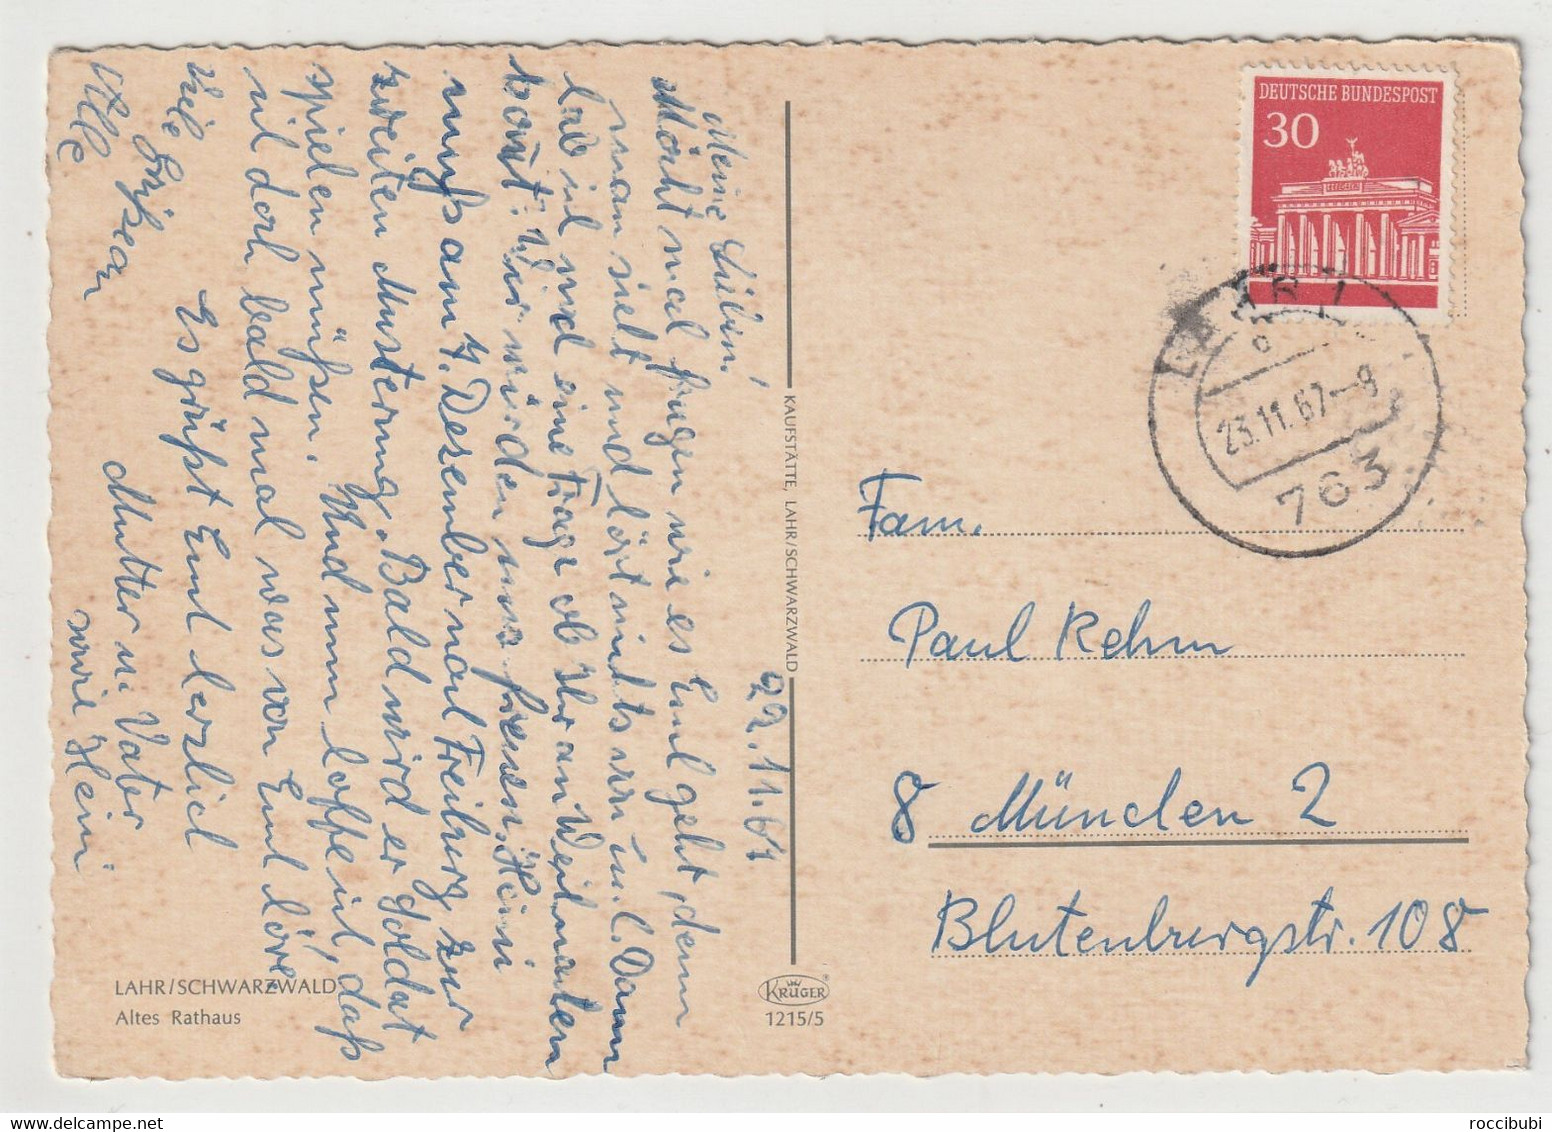 22.11.67
Meine Lieben!
Möcht mal fragen wie es Euch geht, denn
man sieht und hört nichts von Euch. Dann
hab ich und eine Frage ob Ihr an Weihnachten
kommt. Wir würden uns freuen. Heini
muß am 7. Dezember nach Freiburg zur
zweiten Musterung. Bald wird er Soldat
spielen müßen. Und nun hoffe ich, daß
ich doch bald mal was von Euch höre.
Es grüßt Euch herzlich
Mutter u. Vater
sowie Heini
Viele Grüße an
Alle
LAHR/SCHWARZWALD
Altes Rathaus
KAUFSTÄTTE, LAHR/SCHWARZWALD
KRÜGER ®
1215/5
DEUTSCHE BUNDESPOST
30
LAHR 1
23.11.67-9
763
Fam.
Paul Rehm
8 München 2
Blutenburgstr. 108
roccibubi